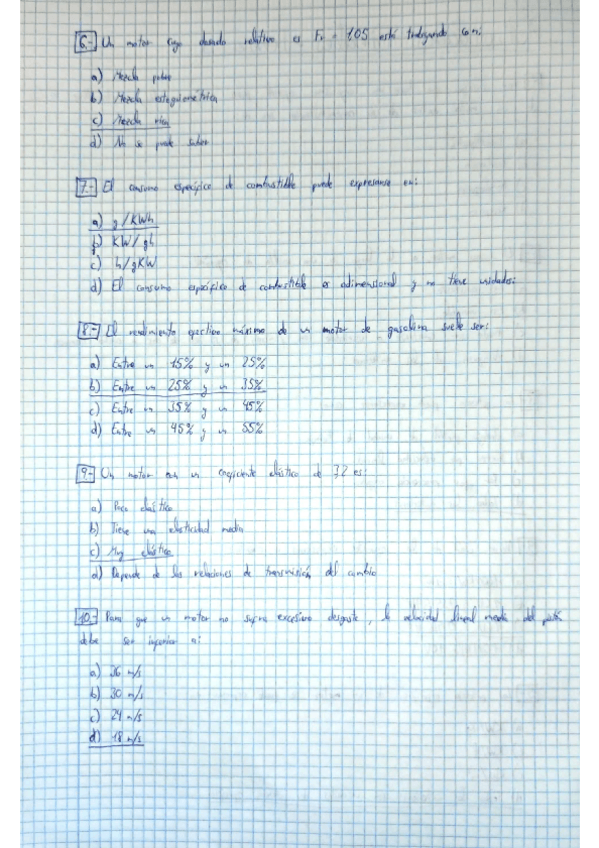 6.- Un motor cuyo dosado relativo es Fr = 1,05 está trabajando con:
a) Mezcla pobre
b) Mezcla estequiométrica
c) Mezcla rica
d) No se puede saber
7.- El consumo específico de combustible puede expresarse en:
a) g/KWh
b) KW/gh
c) h/gKW
d) El consumo específico de combustible es adimensional y no tiene unidades:
8.- El rendimiento efectivo máximo de un motor de gasolina suele ser:
a) Entre un 15% y un 25%
b) Entre un 25% y un 35%
c) Entre un 35% y un 45%
d) Entre un 45% y un 55%
9.- Un motor con un coeficiente elástico de 3,2 es:
a) Poco elástico
b) Tiene una elasticidad media
c) Muy elástico
d) Depende de las relaciones de transmisión del cambio
10.- Para que un motor no sufra excesivo desgaste, la velocidad lineal media del pistón
debe ser inferior a:
a) 36 m/s
b) 30 m/s
c) 24 m/s
d) 18 m/s